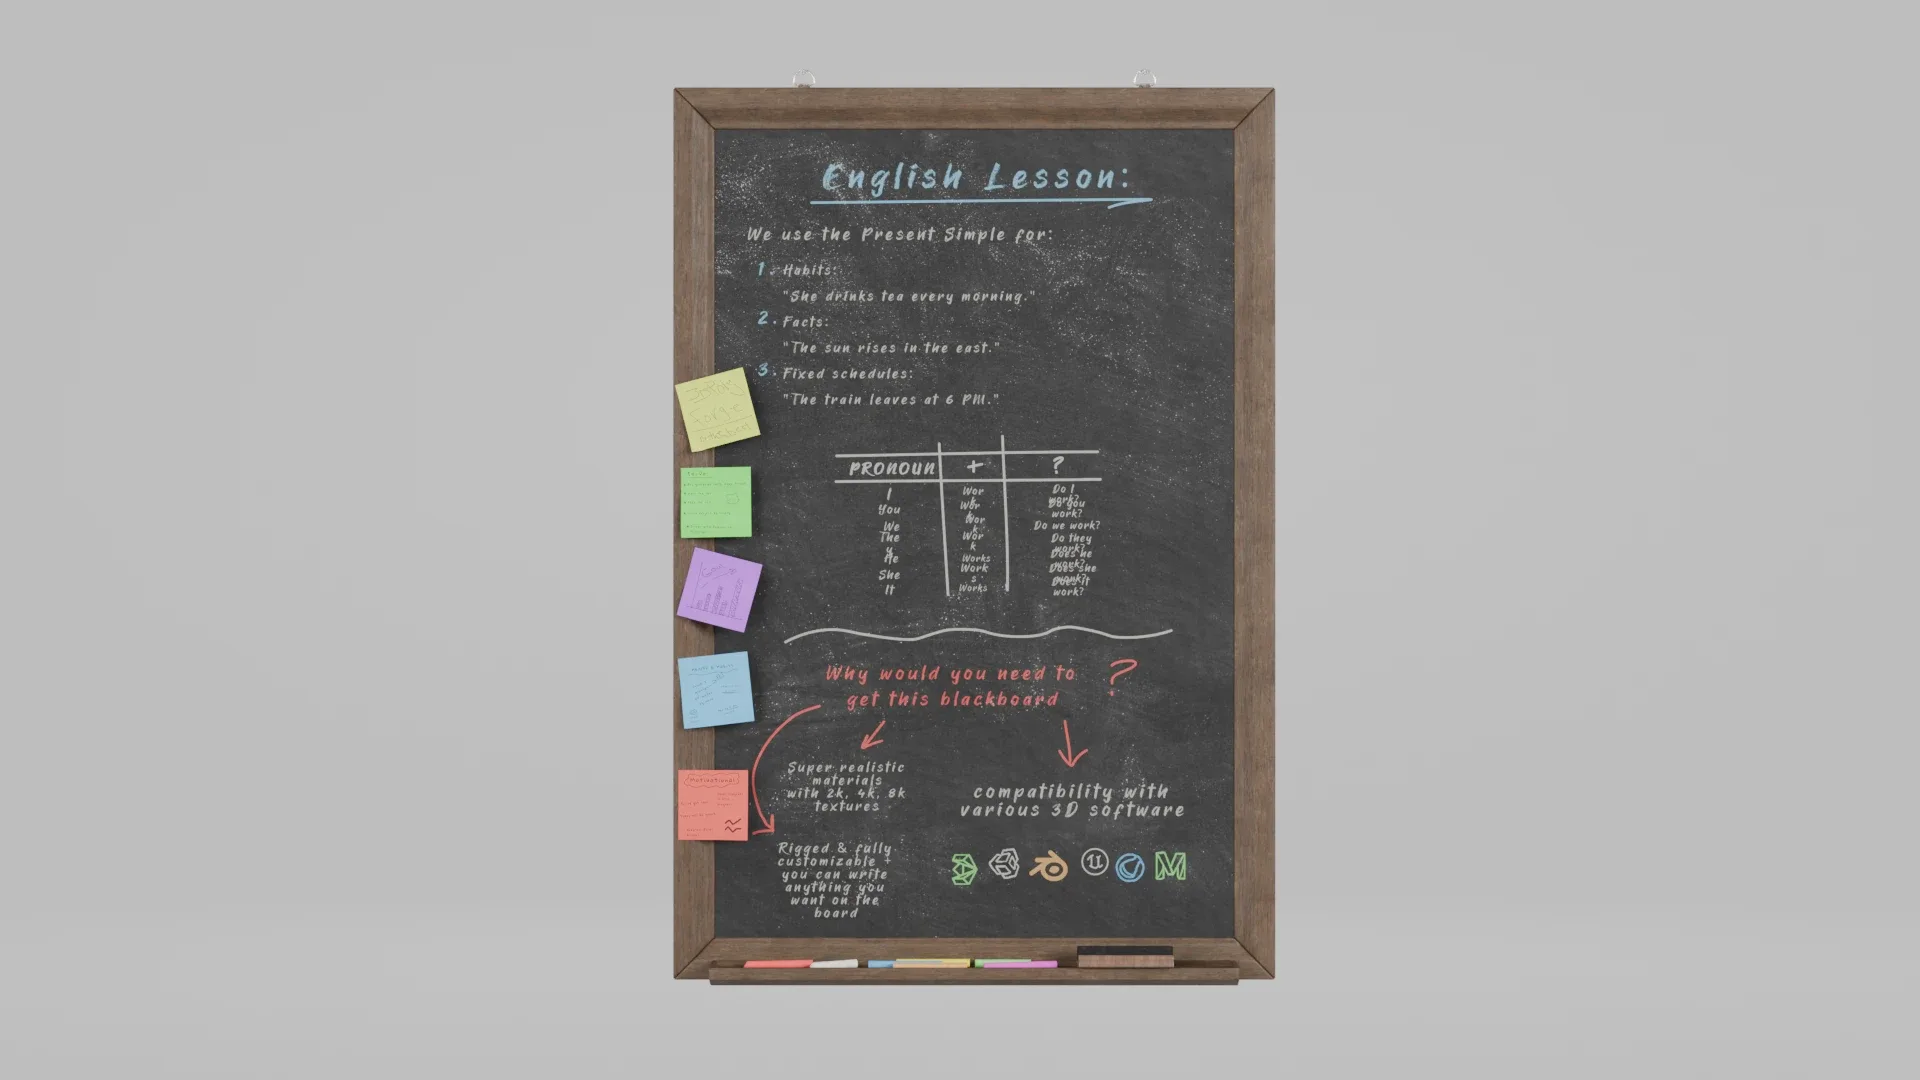 English Lesson:
We use the Present Simple for:
1. Habits:
"She drinks tea every morning."
2. Facts:
"The sun rises in the east."
3. Fixed schedules:
"The train leaves at 6 PM."
PRONOUN + ?
I Work Do I work?
You Work Do you work?
We Work Do we work?
They Work Do they work?
He Works Does he work?
She Works Does she work?
It Works Does it work?
Why would you need to
get this blackboard ?
Super realistic
materials
with 2k, 4k, 8k
textures
compatibility with
various 3D software
Rigged & fully
customizable +
you can write
anything you
want on the
board
Motivational